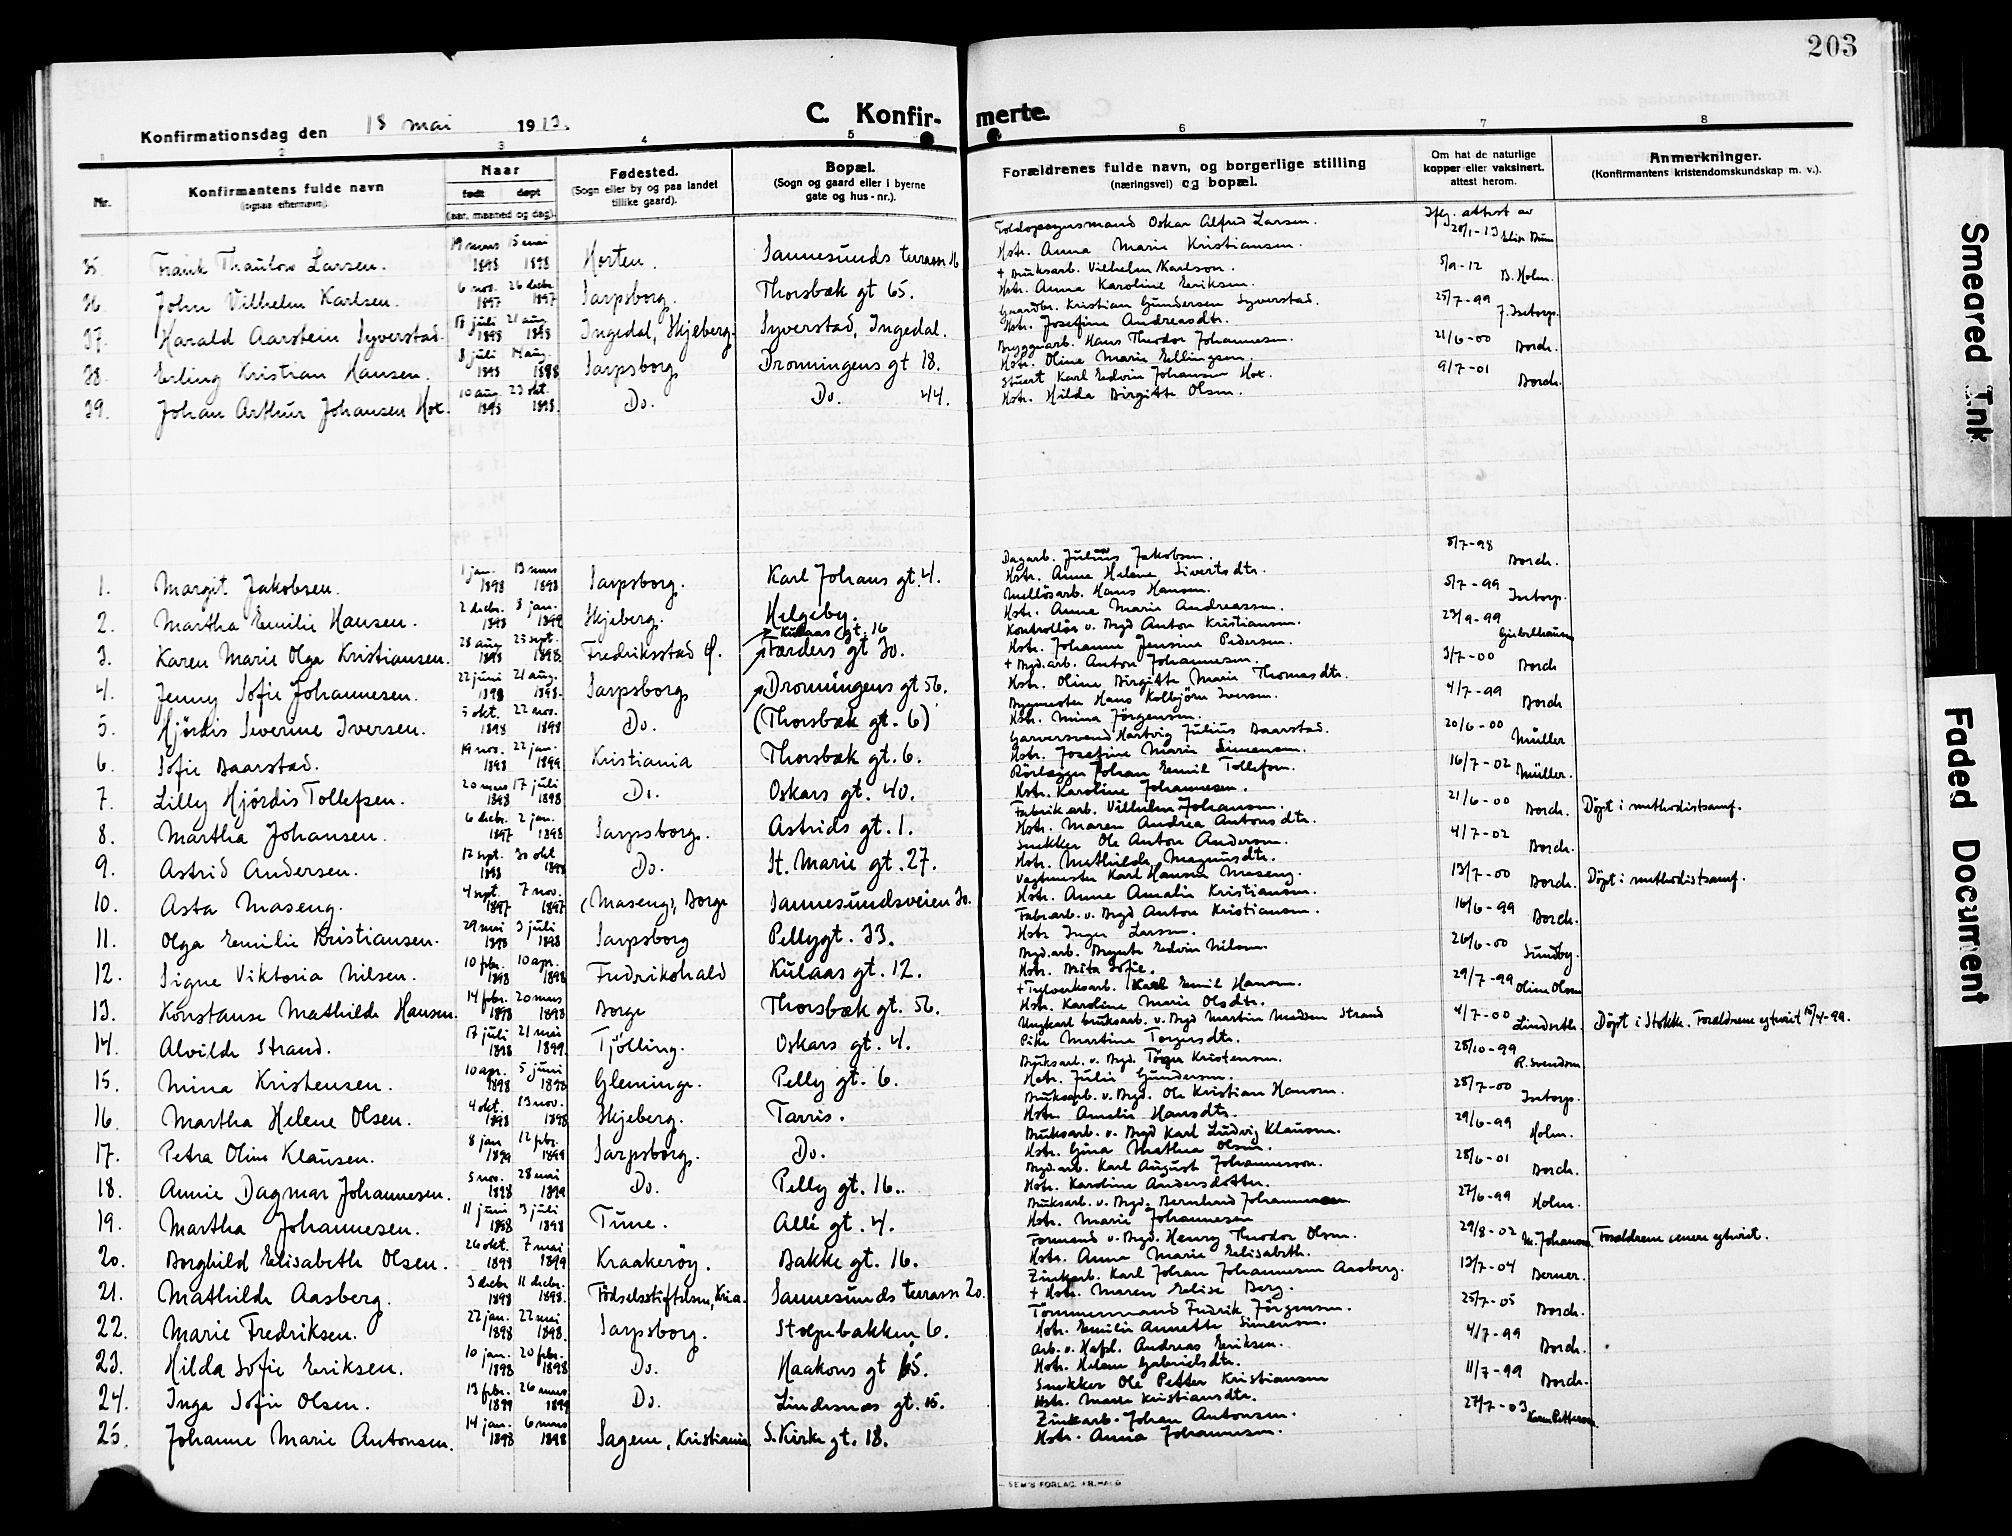 203
Konfirmationsdag den 18 mai 1913.
C. Konfirmerte.
1 2 3 4 5 6 7 8
Nr.
Konfirmantens fulde navn
(ogsaa efternavn).
Naar
født døpt
(aar, maaned og dag).
Fødested.
(Sogn eller by og paa landet
tillike gaard).
Bopæl.
(Sogn og gaard eller i byerne
gate og hus-nr.).
Forældrenes fulde navn, og borgerlige stilling
(næringsvei) og bopæl.
Om hat de naturlige
kopper eller vaksinert.
attest herom.
Anmerkninger.
(Konfirmantens kristendomskundskap m. v.).
35. Frank Thaulow Larsen. 19 mars 1898 15 mai 1898 Horten. Sannesunds terasse 16 Toldopsynsmand Oskar Alfred Larsen. Hstr. Anna Marie Kristiansen. Iflg. attest av 28/1-13
36. John Vilhelm Karlsen. 6 nov. 1897 26 decbr. 1897 Sarpsborg. Thorsbæk gt 65. + Bruksarb. Vilhelm Karlson. Hstr. Anna Karoline Eriksen. 5/9-12 B. Holm.
37. Harald Aarstein Syverstad. 18 juli 1898 21 aug. 1898 Ingedal, Skjeberg. Syverstad, Ingedal. Gaardbr. Kristian Gundersen Syverstad. Hstr. Josefine Andreasdtr. 25/7-99 J. Intorp.
38. Erling Kristian Hansen. 8 juli 1898 14 aug. 1898 Sarpsborg Dronningens gt 18. Bryggearb. Hans Theodor Johannesen. Hstr. Oline Marie Ellingsen. 21/6-00 Borch.
39. Johan Arthur Johansen Hox. 10 aug. 1898 23 okt. 1898. Do. Do. 44. Stuert Karl Edvin Johansen Hox. Hstr. Hilda Birgitte Olsen. 9/7-01 Borch.
1. Margit Jakobsen. 1 jan. 1898 13 mars 1898 Sarpsborg. Karl Johans gt. 4. Dagarb. Julius Jakobsen. Hstr. Anne Helene Sivertsdtr. 8/7-98 Borch.
2. Martha Emilie Hansen. 2 decbr. 1898 8 jan. 1899 Skjeberg. Helgeby. Mellösarb. Hans Hansen. Hstr. Anna Marie Andreassen. 5/7-99 Intorp.
3. Karen Marie Olga Kristiansen. 28 aug. 1898 25 sept. 1898. Fredriksstad Ø. Kulaas gt. 16 Færders gt 30. Kontrollör v. Bryd Anton Kristiansen. Hstr. Johanne Jensine Pedersen. 23/9-99
4. Jenny Sofie Johannesen. 22 juni 1898 21 aug. 1898. Sarpsborg Dronningens gt 56. + Bryd.arb. Anton Johannesen. Hstr. Oline Birgitte Marie Thomasdtr. 3/7-00 Borch
5. Hjördis Severine Iversen. 5 okt. 1898 22 nov. 1898 Do. (Thorsbæk gt. 6) Bygmester Hans Kolbjörn Iversen. Hstr. Mina Jörgensen. 4/7-99 Borch
6. Sofie Baarstad. 19 nov. 1898 22 jan. 1899 Kristiania Thorsbæk gt. 6. Garversvend Hartvig Julius Baarstad. Hstr. Josefine Marie Simensen. 20/6-00 Müller
7. Lilly Hjördis Tollefsen. 20 mars 1898 17 juli 1898 Do. Oskars gt. 40. Rörlægger Johan Emil Tollefsen. Hstr. Karoline Johannesen. 16/7-02 Müller.
8. Martha Johansen. 6 decbr. 1897 2 jan. 1898 Sarpsborg. Astrids gt. 1. Fabrikarb. Vilhelm Johansen. Hstr. Maren Andrea Antonsdtr. 21/6-00 Borch. Döpt i methodistsamf.
9. Astrid Andersen. 12 sept. 1898 30 okt 1898 Do. St. Marie gt. 27. Snekker Ole Anton Andersen. Hstr. Mathilde Magnusdtr. 4/7-02 Borch.
10. Asta Maseng. 4 sept. 1897 7 nov. 1897 (Maseng), Borge Sannesundsveien 30. Vagtmester Karl Hansen Maseng. Hstr. Anne Amalie Kristiansen. 13/7-00 Borch. Döpt i methodistsamf.
11. Olga Emilie Kristiansen. 29 mai 1898 3 juli 1898 Sarpsborg Pellygt. 33. Fabr.arb. v. Bryd Anton Kristiansen. Hstr Inger Larsen. 16/6-99 Borch.
12. Signe Viktoria Nilsen. 10 febr. 1898 10 apr. 1898 Fredrikshald Kulaas gt. 12. Bryd.arb. Edvin Nilsen. Hstr. Brita Sofie. 26/6-00 Sundby.
13. Konstanse Mathilde Hansen. 14 febr. 1898 20 mars 1898 Borge Thorsbæk gt. 56. Karl Emil Hansen. Hstr. Karoline Marie Olsdtr. 29/7-99 Oline Olsen
14. Alvilde Strand. 17 juli 1898 21 mai 1899. Tjölling. Oskars gt. 4. Ungkarl bruksarb. v. Bryd Martin Madsen Strand Pike Martine Torgersdtr. 4/7-00 Lindseth. Döpt i Stokke. Forældrene egtevíet 16/4-99.
15. Mina Kristensen. 10 apr. 1898 5 juni 1898 Glemminge. Pelly gt. 6. Bruksarb. v. Bryd. Kristensen. Hstr. Julie Gundersen. 28/10-99 R. Svendsen
16. Martha Helene Olsen. 4 okt. 1898 13 nov. 1898 Skjeberg. Tarris. Bruksarb. v. Bryd. Ole Kristian Hansen. Hstr. Amalie Hansdtr. 28/7-00 Intorp.
17. Petra Oline Klausen. 8 jan 1899 12 febr. 1899 Sarpsborg. Do. Bruksarb. v. Bryd Karl Ludvig Klausen. Hstr. Gina Mathea Olsen. 29/6-99 Holm.
18. Annie Dagmar Johannesen. 5 nov. 1898 28 mai 1899 Do. Pelly gt. 16. Bryd.arb. Karl August Johannesson. Hstr. Karoline Andersdotter. 28/6-01 Borch.
19. Martha Johannesen. 11 juni 1898 3 juli 1898 Tune. Allé gt. 4. Bruksarb. v. Bryd. Bernhard Johannesen Hstr. Marie Johannesen 27/6-99 Holm.
20. Borghild Elisabeth Olsen. 26 okt. 1898 7 mai 1899 Kraakeröy. Bakke gt. 16. Formand v. Bryd. Henry Theodor Olsen. Hstr. Anna Marie Elisabeth. 29/8-02 M. Johansen. Forældrene senere egteviet.
21. Mathilde Aasberg. 3 decbr 1898 11 decbr. 1898. Födselsstiftelsen, Kria. Sannesunds terasse 20. Zinkarb. Karl Johan Johannesen Aasberg. + Hstr. Maren Elise Berg. 13/7-04 Berner.
22. Marie Fredriksen. 22 jan. 1898 22 mai 1898. Sarpsborg. Stolpebakken 6. Tömmermand Fredrik Jörgensen. Hstr. Emilie Annette Simensen. 25/7-05 Borch.
23. Hilda Sofie Eriksen. 10 jan. 1898 20 febr. 1898 Do. Haakons gt 65. Arb. v. Hafsl. Andreas Eriksen. Hstr. Helene Gabrielsdtr. 4/7-99 Borch.
24. Inga Sofie Olsen. 13 febr. 1899 26 mars 1899 Do. Lindesnæs gt. 15. Snekker Ole Petter Kristiansen Hstr. Marie Kristiansdtr. 11/7-99 Borch.
25. Johanne Marie Antonsen. 14 jan. 1898 6 mars 1898 Sagene, Kristiania S. Kirke gt. 18. Zinkarb. Johan Antonsen. Hstr. Anna Johannesen. 27/7-03 Karen Pettersen
SEM'S FORLAG, FR.HALD
Smeared Ink
Faded Document